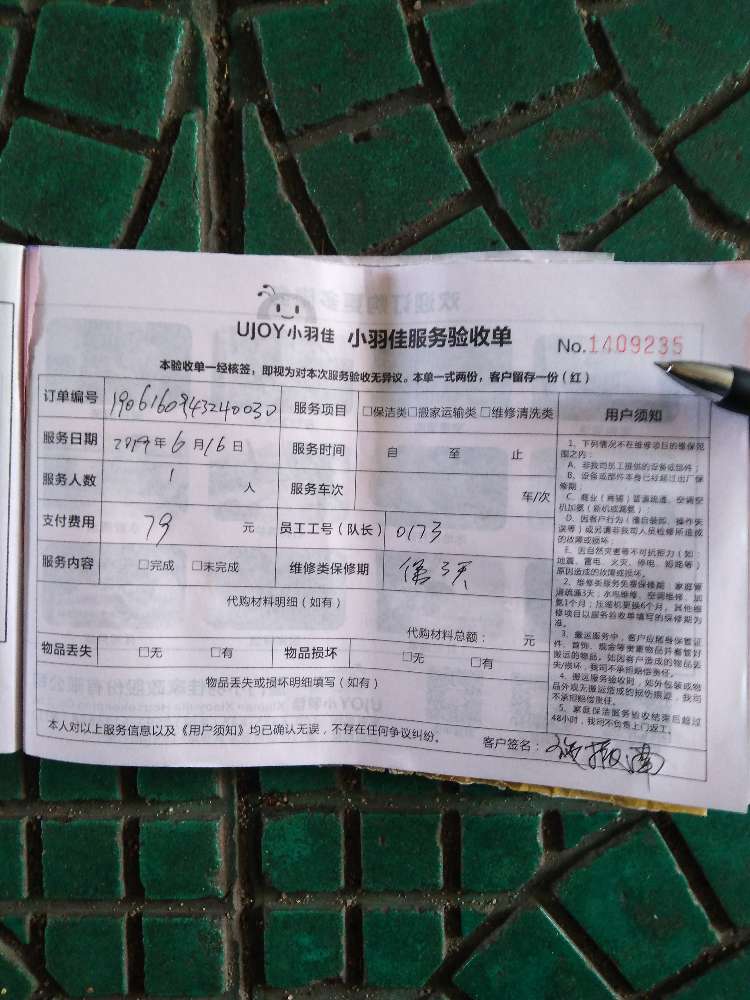 UJOY小羽佳 小羽佳服务验收单
No.1409235
本验收单一经核签，即视为对本次服务验收无异议。本单一式两份，客户留存一份（红）
订单编号 1906160943240030 服务项目 □保洁类□搬家运输类□维修清洗类
服务日期 2019年6月16日 服务时间 自 至 止
服务人数 1 人 服务车次 车/次
支付费用 79 元 员工工号（队长） 0173
服务内容 □完成 □未完成 维修类保修期 3天
代购材料明细（如有）
代购材料总额： 元
物品丢失 □无 □有 物品损坏 □无 □有
物品丢失或损坏明细填写（如有）
本人对以上服务信息以及《用户须知》均已确认无误，不存在任何争议纠纷。
客户签名：
用户须知
1、下列情况不在维修项目的维保范
围之内：
A、非我司员工提供的设备或部件；
B、设备或部件本身已经超过出厂保
修期；
C、商业（商铺）管道疏通、空调空
机加氨（新机或漏氨）；
D、因客户行为（擅自装卸、操作失
误等）或另请非我司人员检修所造成
的故障或损坏；
E、因自然灾害等不可抗拒力（如：
地震、雷电、火灾、停电、短路等）
原因造成的故障或损坏。
2、维修类服务免费保修期：家庭管
道疏通3天；水电维修、空调维修、加
氨1个月；压缩机更换6个月，其他维
修项目以服务验收单填写的保修期为
准。
3、搬运服务中，客户应随身保管证
件、首饰、现金等贵重物品并看管好
搬运的物品。如因客户造成的物品丢
失/损坏，我司不承担赔偿责任。
4、搬运服务验收则，如外包装或物
品外观无搬运造成的损伤痕迹，我司
不承担赔偿责任。
5、家庭保洁服务验收结束后超过
48小时，我司不负责上门返工。